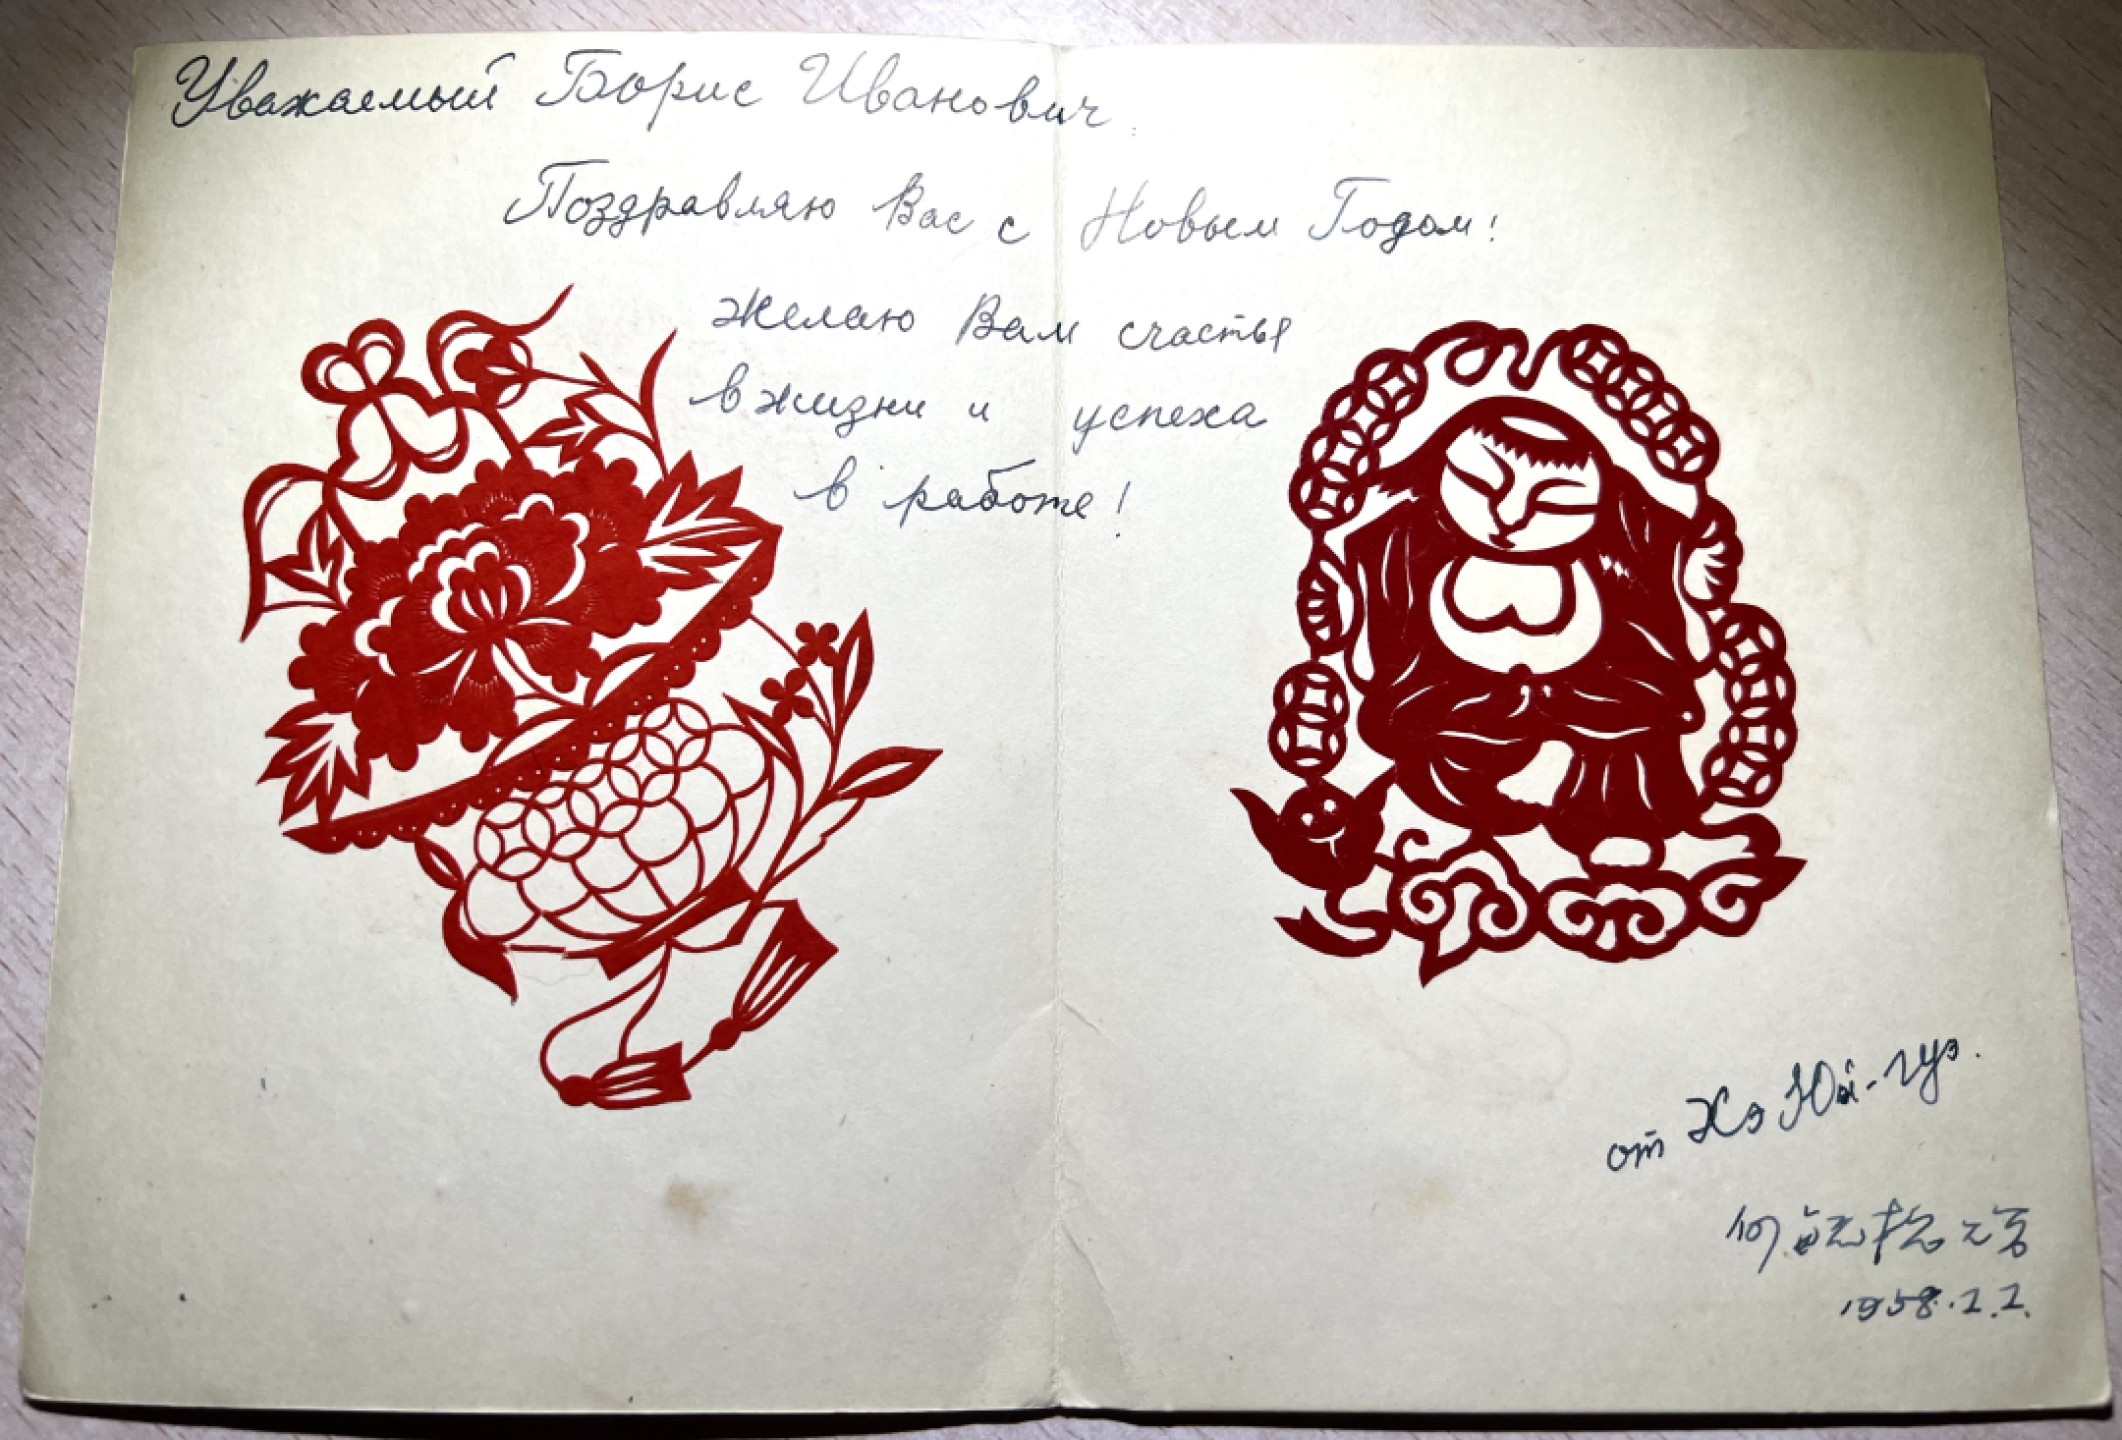 Уважаемый Борис Иванович.
Поздравляю Вас с Новым Годом!
Желаю Вам счастья
в жизни и успеха
в работе!
от Хэ Юй-гуэ.
何
1958.1.1.